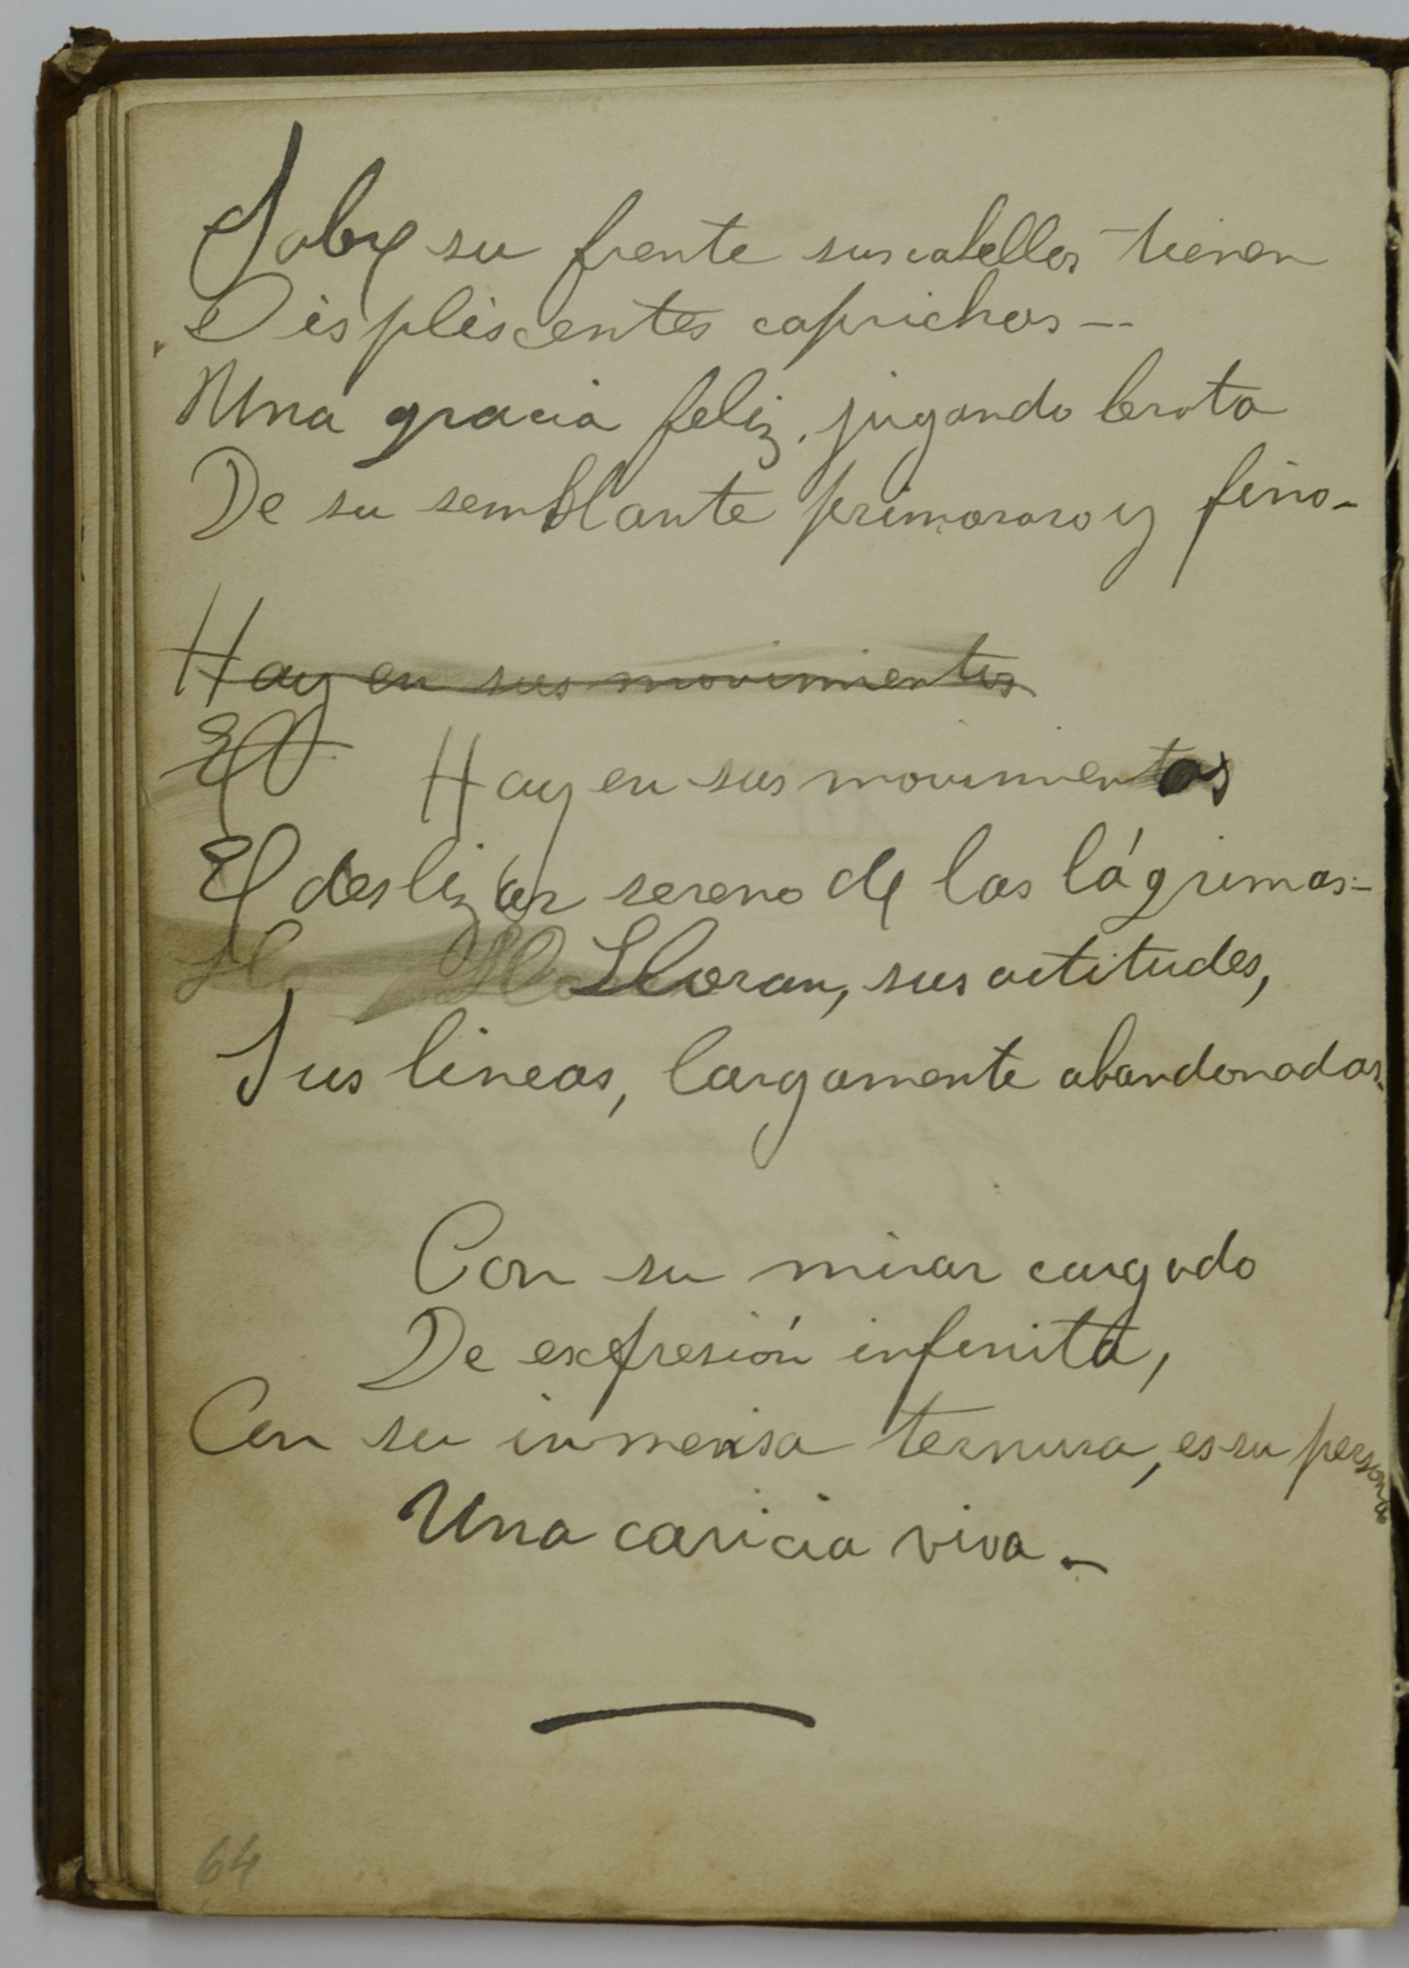 Sobre su frente sus cabellos tienen
Displiscentes caprichos--
Una gracia feliz, jugando brota
De su semblante primoroso y fino-
Hay en sus movimientos
El
Hay en sus movimientos
El deslizar sereno de las lágrimas-
Lloran, sus actitudes,
Sus lineas, largamente abandonadas-
Con su mirar cargado
De expresión infinita,
Con su inmensa ternura, es su persona
Una caricia viva-
64